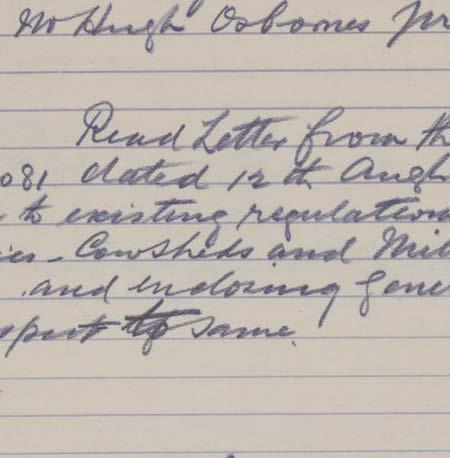 Mr Hugh Osbornes pr
Read Letter from th
081 dated 12th Augh
to existing regulation
ies - Cowsheds and Mil
and enclosing Gene
spect to same.